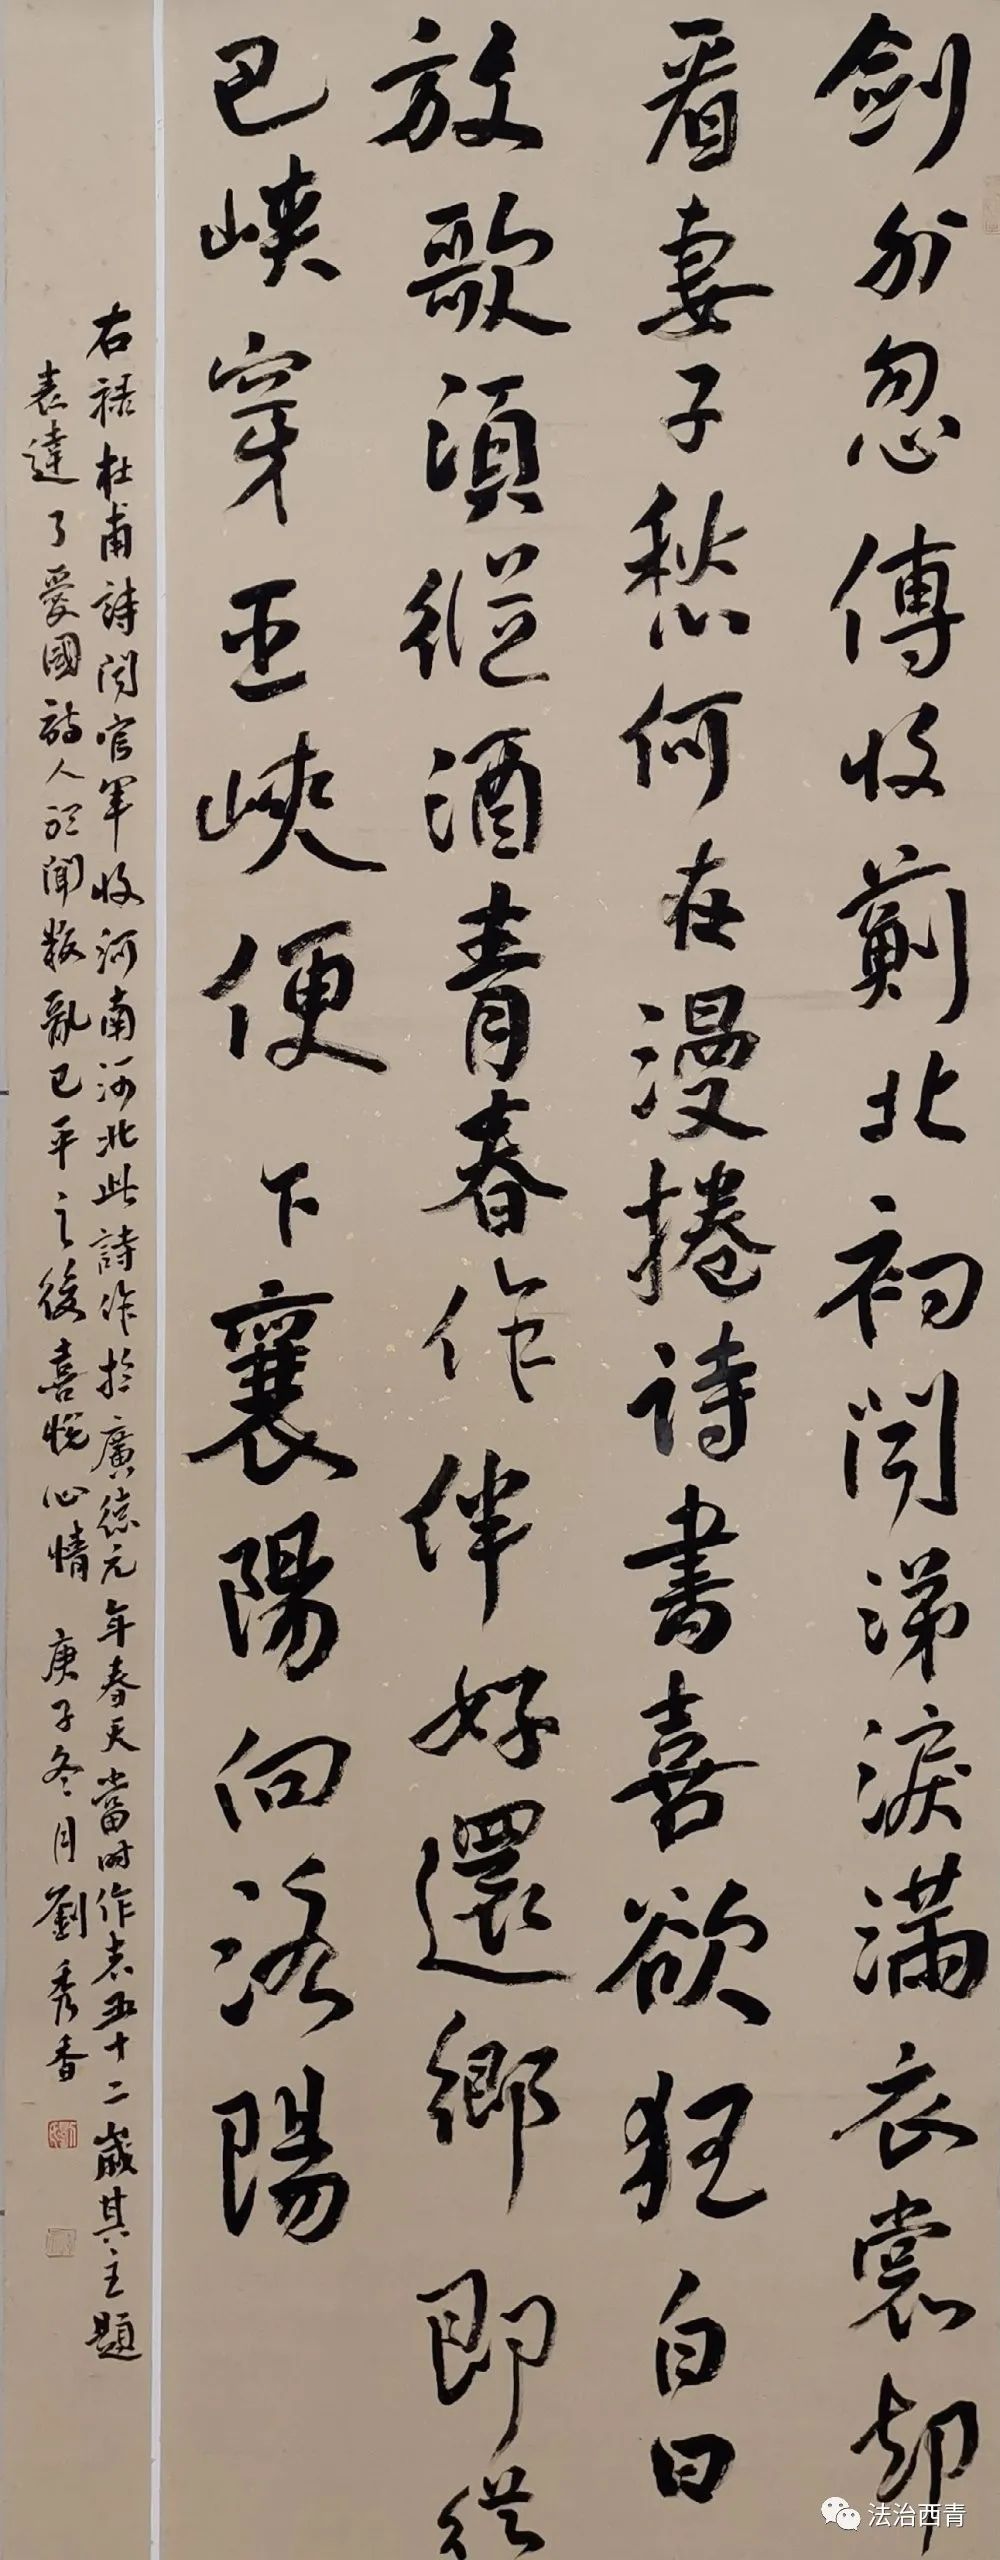 劍外忽傳收薊北初聞涕淚滿衣裳却
看妻子愁何在漫捲詩書喜欲狂白日
放歌須縱酒青春作伴好還鄉即從
巴峽穿巫峽便下襄陽向洛陽
右録杜甫詩聞官軍收河南河北此詩作於廣德元年春天當時作者五十二歲其主題
表達了愛國詩人於聞叛亂已平之後喜悅心情 庚子冬月劉秀香
法治西青